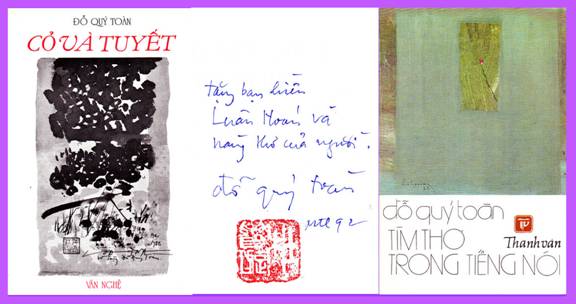 ĐỖ QUÝ TOÀN
CỎ VÀ TUYẾT
VĂN NGHỆ
tặng bạn hiền
Luân Hoán và
nàng thơ của người.
đỗ quý toàn
đỗ quý toàn
Thanhvăn
TÌM THƠ
TRONG TIẾNG NÓI